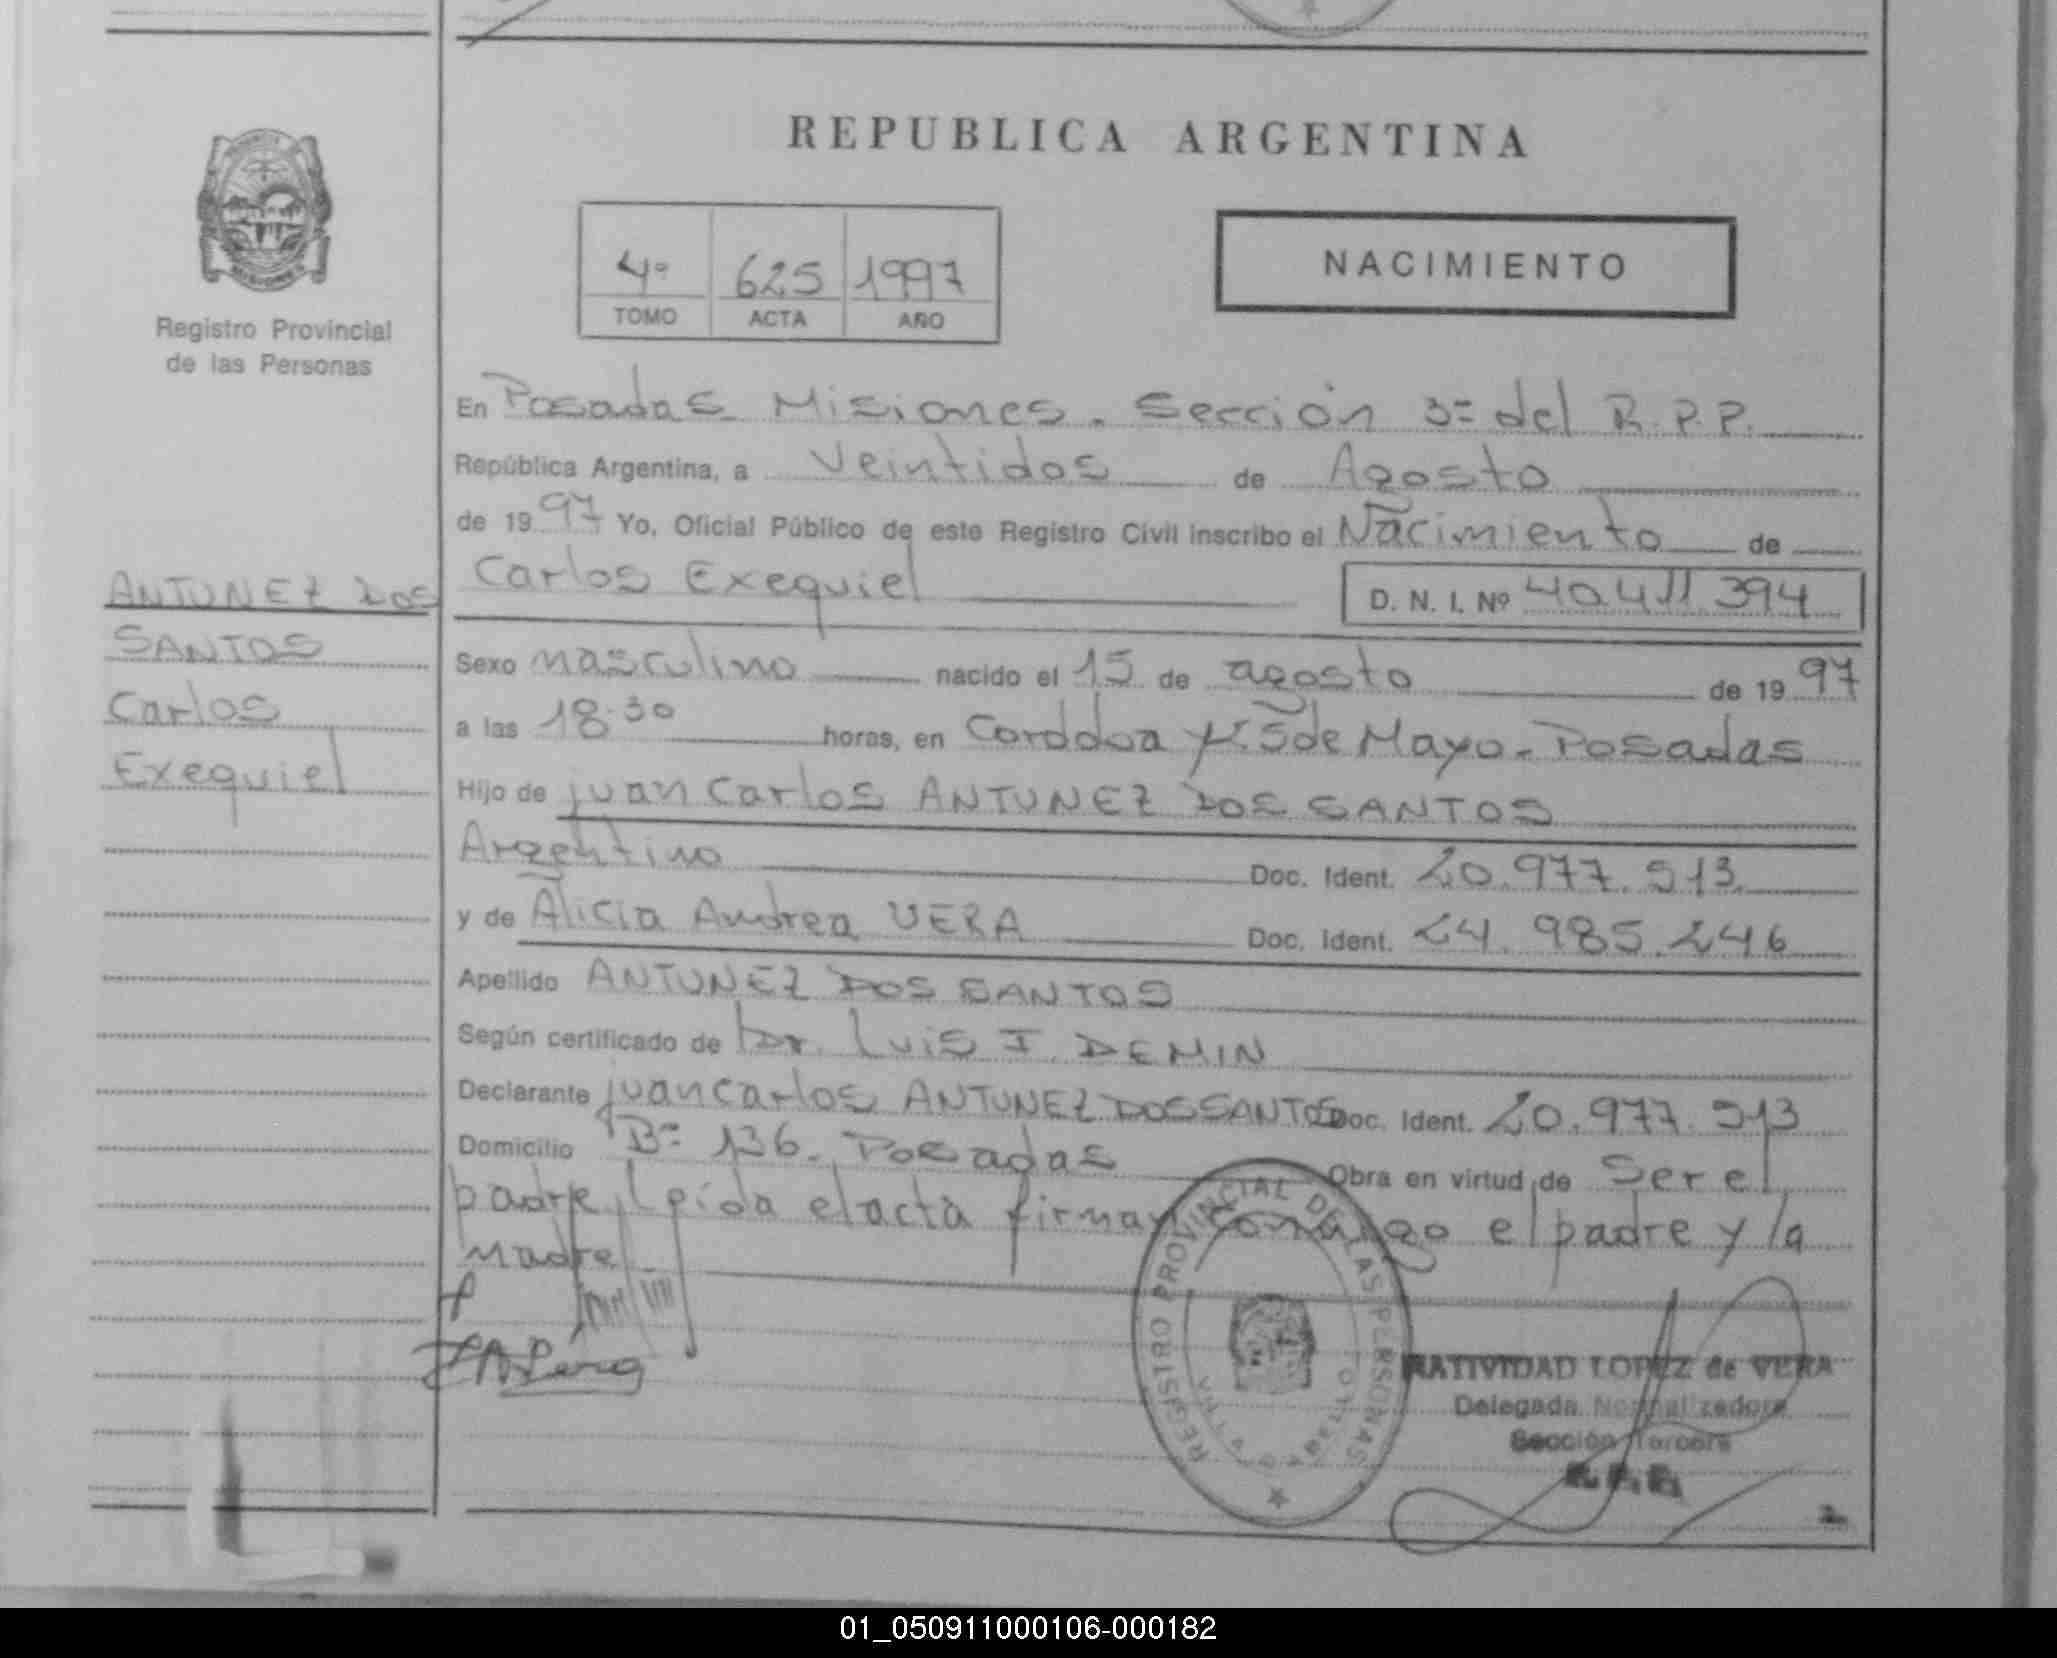 REPUBLICA ARGENTINA
Registro Provincial
de las Personas
4º 625 1997
TOMO ACTA AÑO
NACIMIENTO
ANTUNEZ DOS
SANTOS
Carlos
Exequiel
En Posadas Misiones. Sección 3ª del R.P.P.
República Argentina, a Veintidos de Agosto
de 1997 Yo, Oficial Público de este Registro Civil inscribo el Nacimiento de
Carlos Exequiel D. N. I. Nº 40.411.394
Sexo masculino nacido el 15 de agosto de 1997
a las 18.30 horas, en Corddoa y 25 de Mayo. Posadas
Hijo de juan Carlos ANTUNEZ DOS SANTOS
Argentino Doc. Ident. 20.977.913
y de Alicia Andrea VERA Doc. Ident. 24.985.246
Apellido ANTUNEZ DOS SANTOS
Según certificado de Dr. Luis I. DEMIN
Declarante juan Carlos ANTUNEZ DOS SANTOS Doc. Ident. 20.977.913
Domicilio Bº 136. Posadas Obra en virtud de Ser el
padre, Leida el acta firman conmigo el padre y la
Madre
REGISTRO PROVINCIAL DE LAS PERSONAS
VILLA CABELLO
NATIVIDAD LOPEZ de VERA
Delegada Normalizadora
Sección Tercera
01_050911000106-000182